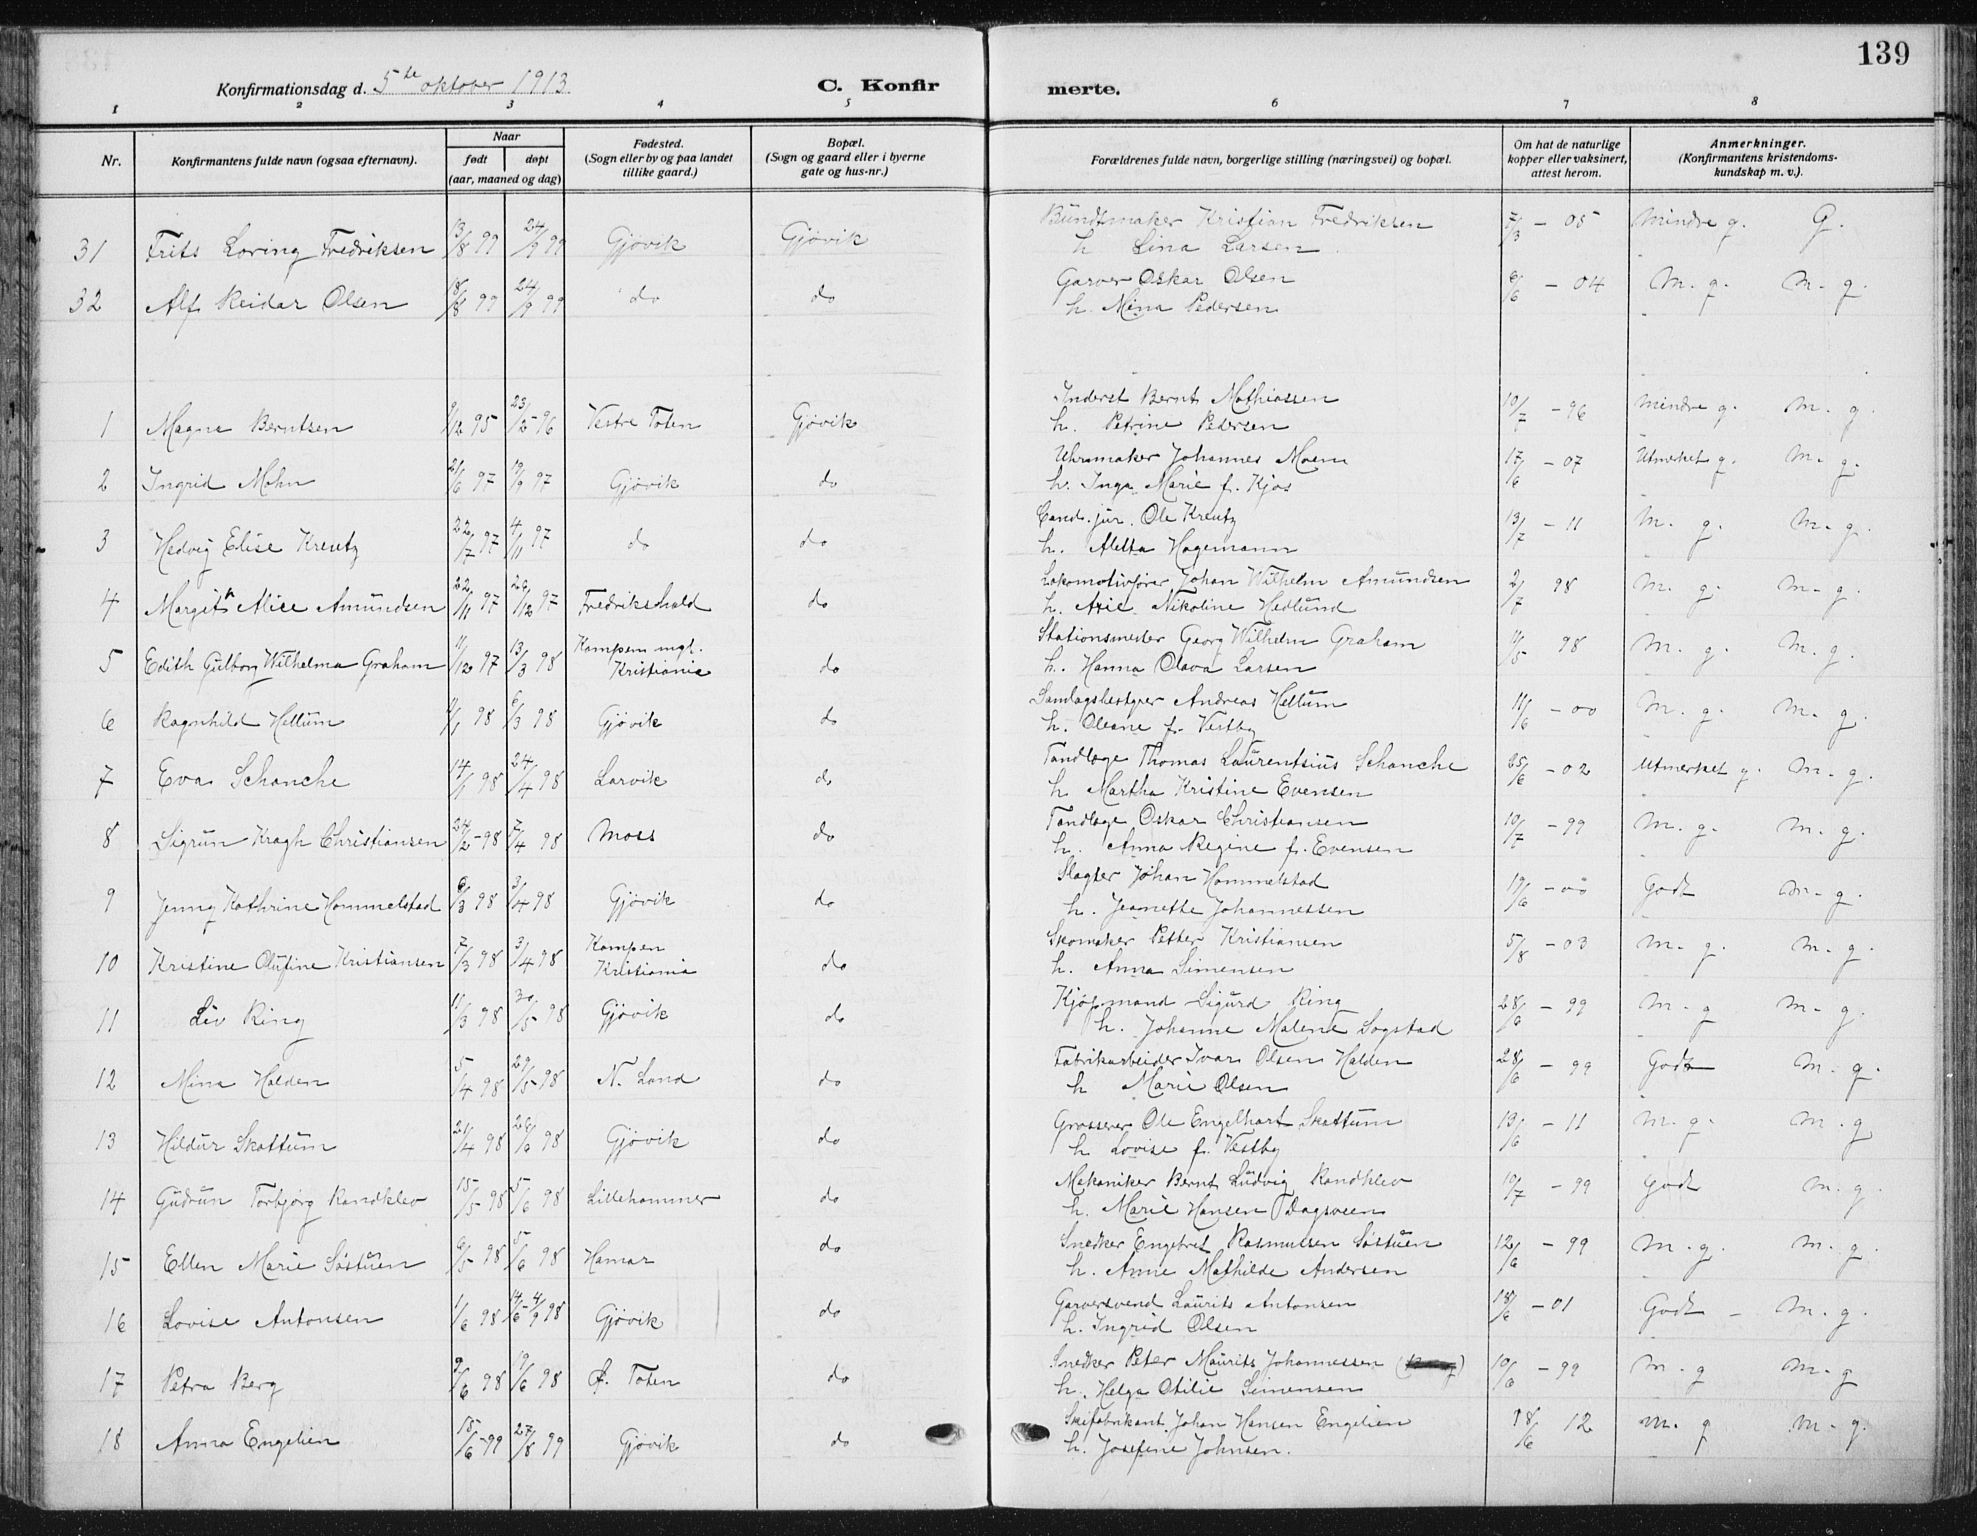 139
Konfirmationsdag d. 5te oktober 1913.
C. Konfirmerte.
1 2 3 4 5 6 7 8
Nr.
Konfirmantens fulde navn (ogsaa efternavn).
Naar
født døpt
(aar, maaned og dag)
Fødested.
(Sogn eller by og paa landet
tillike gaard.)
Bopæl.
(Sogn og gaard eller i byerne
gate og hus-nr.)
Forældrenes fulde navn, borgerlige stilling (næringsvei) og bopæl.
Om hat de naturlige
kopper eller vaksinert,
attest herom.
Anmerkninger.
(Konfirmantens kristendoms-
kundskap m. v.).
31 Frits Loring Fredriksen 13/8 99 24/9 99 Gjøvik Gjøvik Bundtmaker Kristian Fredriksen 7/3 - 05 mindre g. G.
h. Lina Larsen
32 Alf Reidar Olsen 18/8 99 24/9 99 do do Garver Oskar Olsen 6/6 - 04 M. g. M. g.
h. Mina Pedersen
1 Magna Berntsen 9/12 95 23/2 - 96 Vestre Toten Gjøvik Inderst Bernt Mathiassen 10/7 - 96 mindre g. M. g.
h. Petrine Pedersen
2 Ingrid Mohn 21/6 97 19/9 97 Gjøvik do Uhrmaker Johannes Moen 17/6 - 07 Utmerket g. M. g.
h. Inga Marie f. Kjos
3 Hedvig Elise Kreutz 22/7 97 4/11 97 do do Cand. jur. Ole Kreutz 13/7 - 11 M. g. M. g.
h. Aletta Hagemann
4 Margit Alise Amundsen 22/11 97 26/12 97 Fredrikshald do Lokomotivfører Johan Wilhelm Amundsen 2/7 98 M. g. M. g.
h. Nikoline Hedlund
5 Edith Gulborg Wilhelma Graham 11/12 97 13/3 98 Kampen mgl. do Stationsmester Georg Wilhelm Graham 11/5 98 M. g. M. g.
Kristiania h. Hanna Olava Larsen
6 Ragnhild Hellum 4/1 98 6/3 98 Gjøvik do Samlagsbestyrer Andreas Hellum 11/6 - 00 M. g. M. g.
h. Oleane f. Vestby
7 Eva Schanche 14/1 98 24/4 98 Larvik do Tandlæge Thomas Laurentsius Schanche 25/6 - 02 Utmerket g. M. g.
h. Martha Kristine Evensen
8 Sigrun Kragh Christiansen 24/2 - 98 7/4 98 Moss do Tandlæge Oskar Christiansen 10/7 - 99 M. g. M. g.
h. Anna Regine f. Evensen
9 Jenny Kathrine Hommelstad 6/3 98 3/4 98 Gjøvik do Slagter Johan Hommelstad 19/6 - 00 Godt M. g.
h. Jeanette Johannessen
10 Kristine Olufine Kristiansen 7/3 98 3/4 98 Kampen do Skomaker Petter Kristiansen 5/8 - 03 M. g. M. g.
Kristiania h. Anna Simensen
11 Liv Ring 11/3 98 30/5 98 Gjøvik do Kjøpmand Sigurd Ring 28/6 - 99 M. g M. g.
h. Johanne Malene Sogstad
12 Mina Halden 5/4 98 29/5 - 98 N. Land do Fabrikarbeider Ivar Olsen Halden 28/6 - 99 Godt M. g.
h Marie Olsen
13 Hildur Skattum 21/4 98 26/6 98 Gjøvik do Grosserer Ole Engelhart Skattum 13/6 - 11 M. g. M. g
h Lovise f. Vestby
14 Gudrun Torbjørg Randklev 15/5 98 5/6 98 Lillehammer do Mekaniker Bernt Ludvig Randklev 10/7 - 99 Godt M. g.
h. Marie Hansen Dagsveen
15 Ellen Marie Søstuen 6/5 98 5/6 98 Hamar do Snedker Engebret Rasmussen Søstuen 12/6 - 99 M. g. M. g.
h. Anne Mathilde Andersen
16 Lovise Antonsen 1/6 98 14/6 - 4/9 98 Gjøvik do Garversvend Laurits Antonsen 18/6 - 01 Godt - M. g.
h. Ingrid Olsen
17 Petra Berg 9/6 98 19/6 98 Ø. Toten do Snedker Peter Maurits Johannessen 10/6 - 99 M. g M. g
h. Helga Otilie Simensen
18 Anna Engelien 15/6 - 99 27/8 99 Gjøvik do Skifabrikant Johan Hansen Engelien 18/6 12 M. g M. g.
h. Josefine Johnsen.